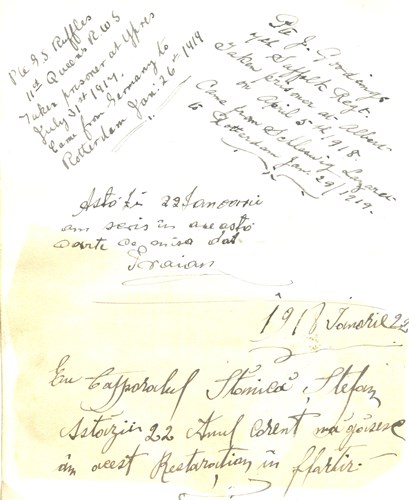 Pte G S Ruffles
11st Queens R.W.S
Taken prisoner at Ypres
July 31st 1917.
Came from Germany to
Rotterdam Jan: 26th 1919
Pte J. Goodings
7th Suffolk Regt.
Taken prisoner at Albert
on April 5th, 1918.
Came from Schleswig Lazaret
to Rotterdam Jan 29/1919.
Astă Zi 22 Ianoarie
am scris în această
carte ce mi sa dat
Traian
1918 Ianarie 22
Eu Capporalul Stănică Ștefan
Astăzi 22 Anul corent mă găsesc
în acest Restaration în